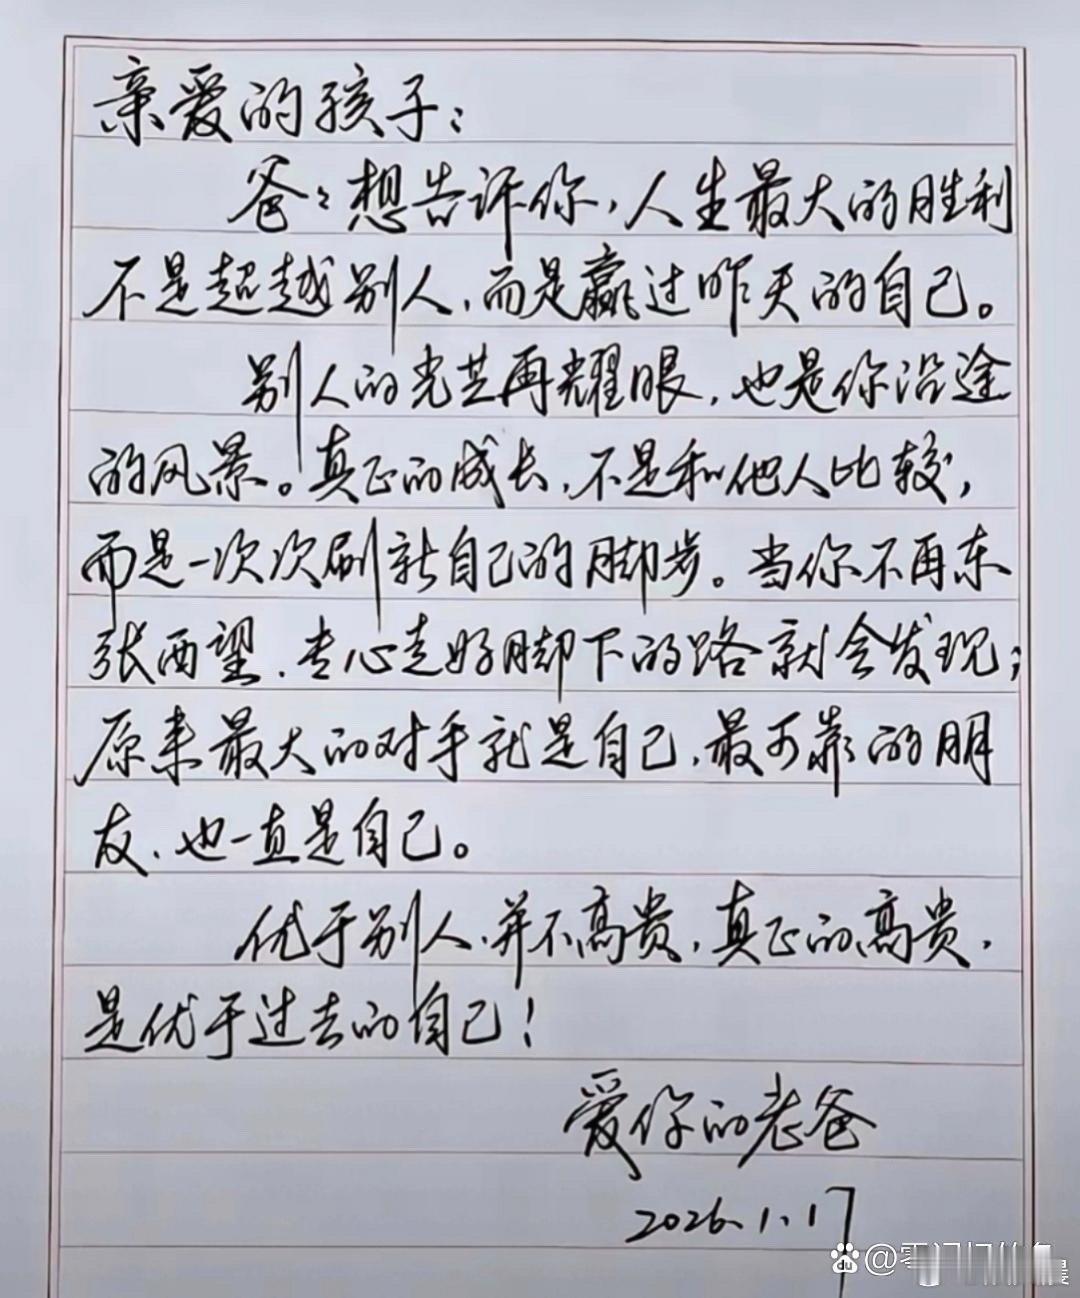 亲爱的孩子：
爸：想告诉你，人生最大的胜利
不是超越别人，而是赢过昨天的自己。
别人的光芒再耀眼，也是你沿途
的风景。真正的成长，不是和他人比较，
而是一次次刷新自己的脚步。当你不再东
张西望、专心走好脚下的路就会发现；
原来最大的对手就是自己，最可靠的朋
友、也一直是自己。
优于别人、并不高贵，真正的高贵，
是优于过去的自己！
爱你的老爸
2026.1.17
du @